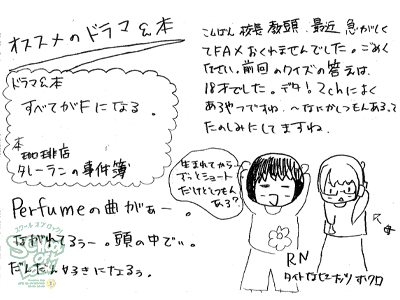 オススメのドラマ&本
ドラマ&本
すべてがFになる。
本
珈琲店
タレーランの事件簿
Perfumeの曲がぁー。
ながれてるぅー。頭の中でぃ。
だんだん好きになるぅ。
こんばんは 校長 教頭、最近 急がしく
てFAXおくれませんでした。ごめく
なさい。前回のクイズの答えは
18才でした。デタ! 2chによく
あるやつですね、〜なにかしつもんある?て
たのしみにしてますね、
生まれてから
ずっとショート
だけどしつもん
ある?
RN
スクール オブ ロック!